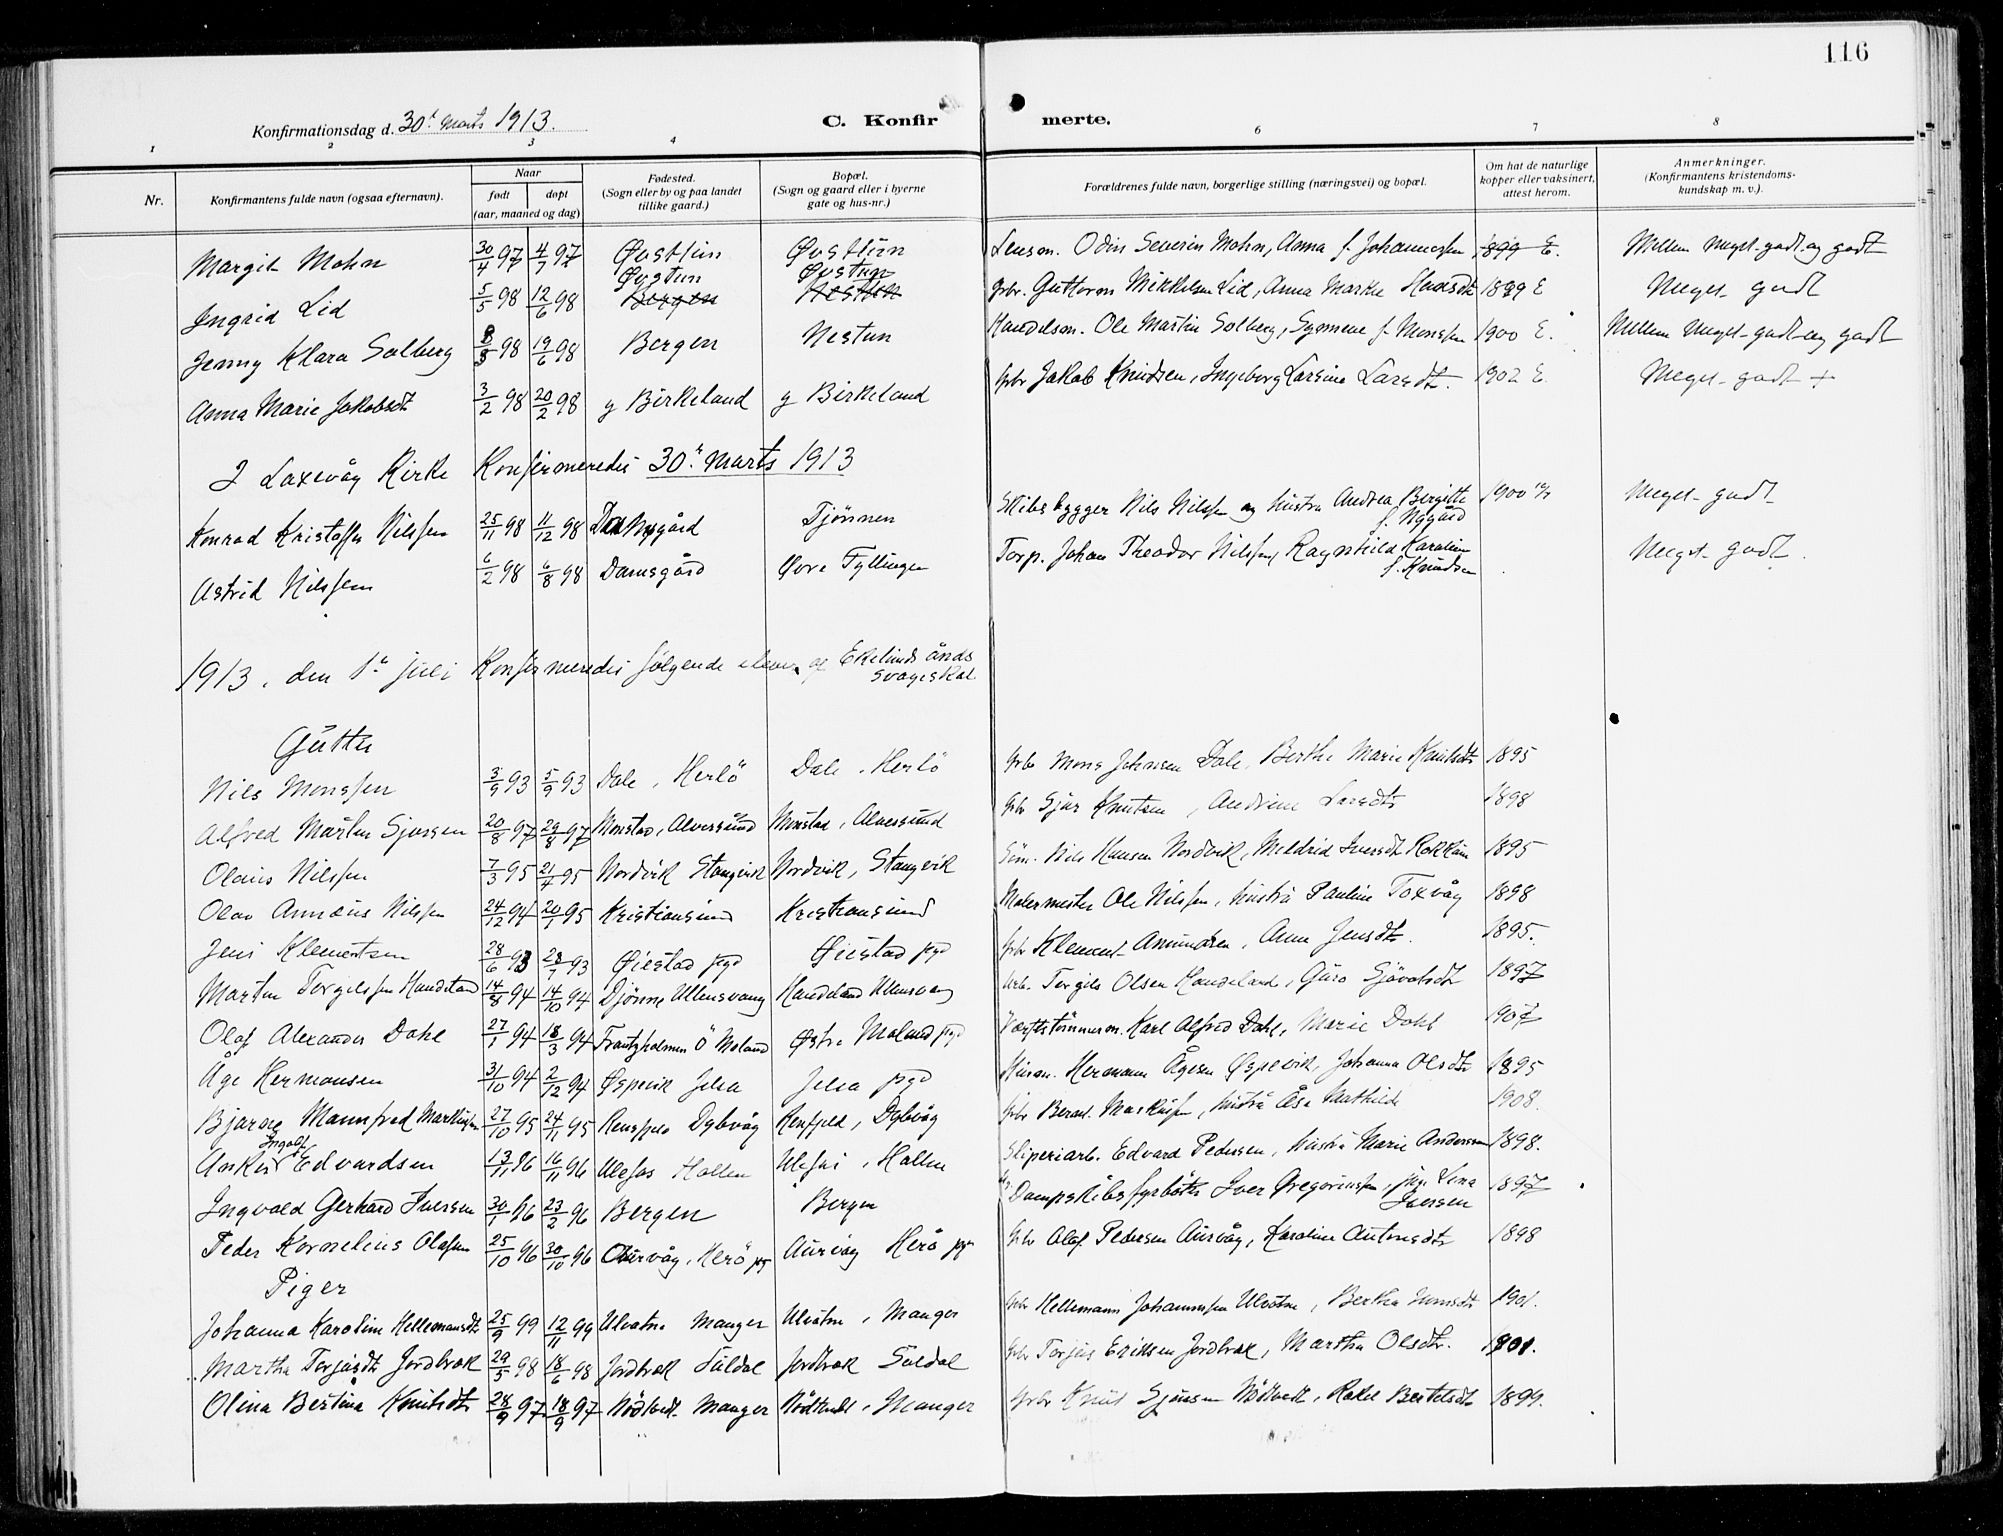 116
Konfirmationsdag d. 30te Marts 1913.
C. Konfir merte.
1 2 3 4 6 7 8
Nr.
Konfirmantens fulde navn (ogsaa efternavn).
Naar
født døpt
(aar, maaned og dag)
Fødested.
(Sogn eller by og paa landet
tillike gaard.)
Bopæl.
(Sogn og gaard eller i byerne
gate og hus-nr.)
Forældrenes fulde navn, borgerlige stilling (næringsvei) og bopæl.
Om hat de naturlige
kopper eller vaksinert,
attest herom.
Anmerkninger.
(Konfirmantens kristendoms-
kundskap m. v.).
Margit Mohn 30/4 97 4/7 97 Øvsttun Øvsttun Odin Severin Mohn, Anna f. Johannessen 1899 E. Mellem Meget godt og godt
Ingrid Lid 5/5 98 12/6 98 Øvstun Bergen Øvstun Nesttun Gbr. Guttorm Mikkelsen Lid, Anna Marke 1899 E Meget godt
Jenny Klara Solberg 8/3 98 19/6 98 Bergen Nestun Handelsm. Ole Martin Solberg, Synneve f. Monssen 1900 E. Mellem Meget godt og godt
Anna Marie Jakobsdt 3/2 98 20/2 98 g Birkeland g Birkeland Gbr Jakob Knudsen, Ingeborg Larsine Larsdt. 1902 E. Meget godt +
I Laxevåg Kirke Konfirmeredes 30te Marts 1913
Konrad Kristoffer Nilssen 25/11 98 11/12 98 Nygård Tjønnen Skibsbygger Nils Nilssen og hustru Andrea Bergitte f. Nygård 1900 Meget godt
Astrid Nilssen 6/2 98 6/8 98 Damsgård Øvre Fyllingen Torp. Johan Theodor Nilssen, Ragnhild Karoline f. Knudsen Meget godt.
1913, den 1te juli Konfirmeredes følgende elever af Ekelunds ånds
svageskole
Gutter
Nils Monssen 3/9 93 5/9 93 Dale, Herlö Dale, Herlö Gbr Mons Johnsen Dale, Berthe Marie Knutsdt 1895
Alfred Martin Sjursen 20/8 97 29/8 97 Monstad, Alversund Monstad, Alversund Gbr Sjur Knutsen, Andrine Larsdt 1898
Olaus Nilssen 7/3 95 21/4 95 Nordvik Stangvik Nordvik, Stangvik Nils Hansen Nordvik, Meldrid Iversdt 1895
Olav Annæus Nilssen 24/12 94 20/1 95 Kristiansund Kristiansund Malermester Ole Nilssen, hustru Pauline Toxvåg 1898
Jens Klementsen 28/6 93 23/7 93 Øiestad pgd Øiestad pgd Gbr Klement Amundsen, Anne Jensdt. 1895.
Martin Torgilssen Handeland 14/8 94 14/10 94 Djønne Ullensvang Handeland Ullensvang Torgils Olsen Handeland, Guro Sjovatsdt 1897
Olaf Alexander Dahl 27/1 94 18/3 94 Frantzholmen Ö Moland Østre Moland pgd Værftstømmerm. Karl Alfred Dahl, Marie Dahl 1907
Åge Hermansen 31/10 94 2/12 94 Øspevik Jelsa Jelsa pgd Husm. Hermann Ågesen Øspevik, Johanna Olsdt 1895
Bjarne Mannfred Markussen 27/10 95 24/11 95 Rensfjeld Dybvåg Rensfjeld, Dybvåg Gbr Markussen, hustru Åse Mathilde 1908.
Anker Ingolf Edvardsen 13/1 96 16/11 96 Ulefos Hollen Ulefos, Hollen Sliperiarb. Edvard Pedersen, hustru Marie Andersen 1898.
Ingvald Gerhard Iversen 30/1 96 23/2 96 Bergen Bergen Dampskibsfyrbøter Iver Gregoriussen, Lina Iversen 1897
Peder Kornelius Olafsen 25/10 96 30/10 96 Aurvåg, Herö pgd Aurvåg Herö pgd Gbr Olaf Pedersen Aurvåg, Karoline Antonsdt 1898
Piger
Johanna Karoline Hellemansdt 25/9 99 12/11 99 Ulvatne Manger Ulvatne, Manger Gbr Hellemann Johannessen Ulvatne, Bertha 1901.
Martha Torjusdt Jordbræk 29/5 98 18/6 98 Jordbræk Suldal Jordbræk Suldal Gbr Torjus Eriksen Jordbræk, Martha Olsdtr. 1901.
Olina Bertina Knutsdt 28/9 97 18/9 97 Nødtvedt Manger Nødtvedt, Manger Gbr Knut Sjursen Nødtvedt, Rakel Bertelsdt 1899.